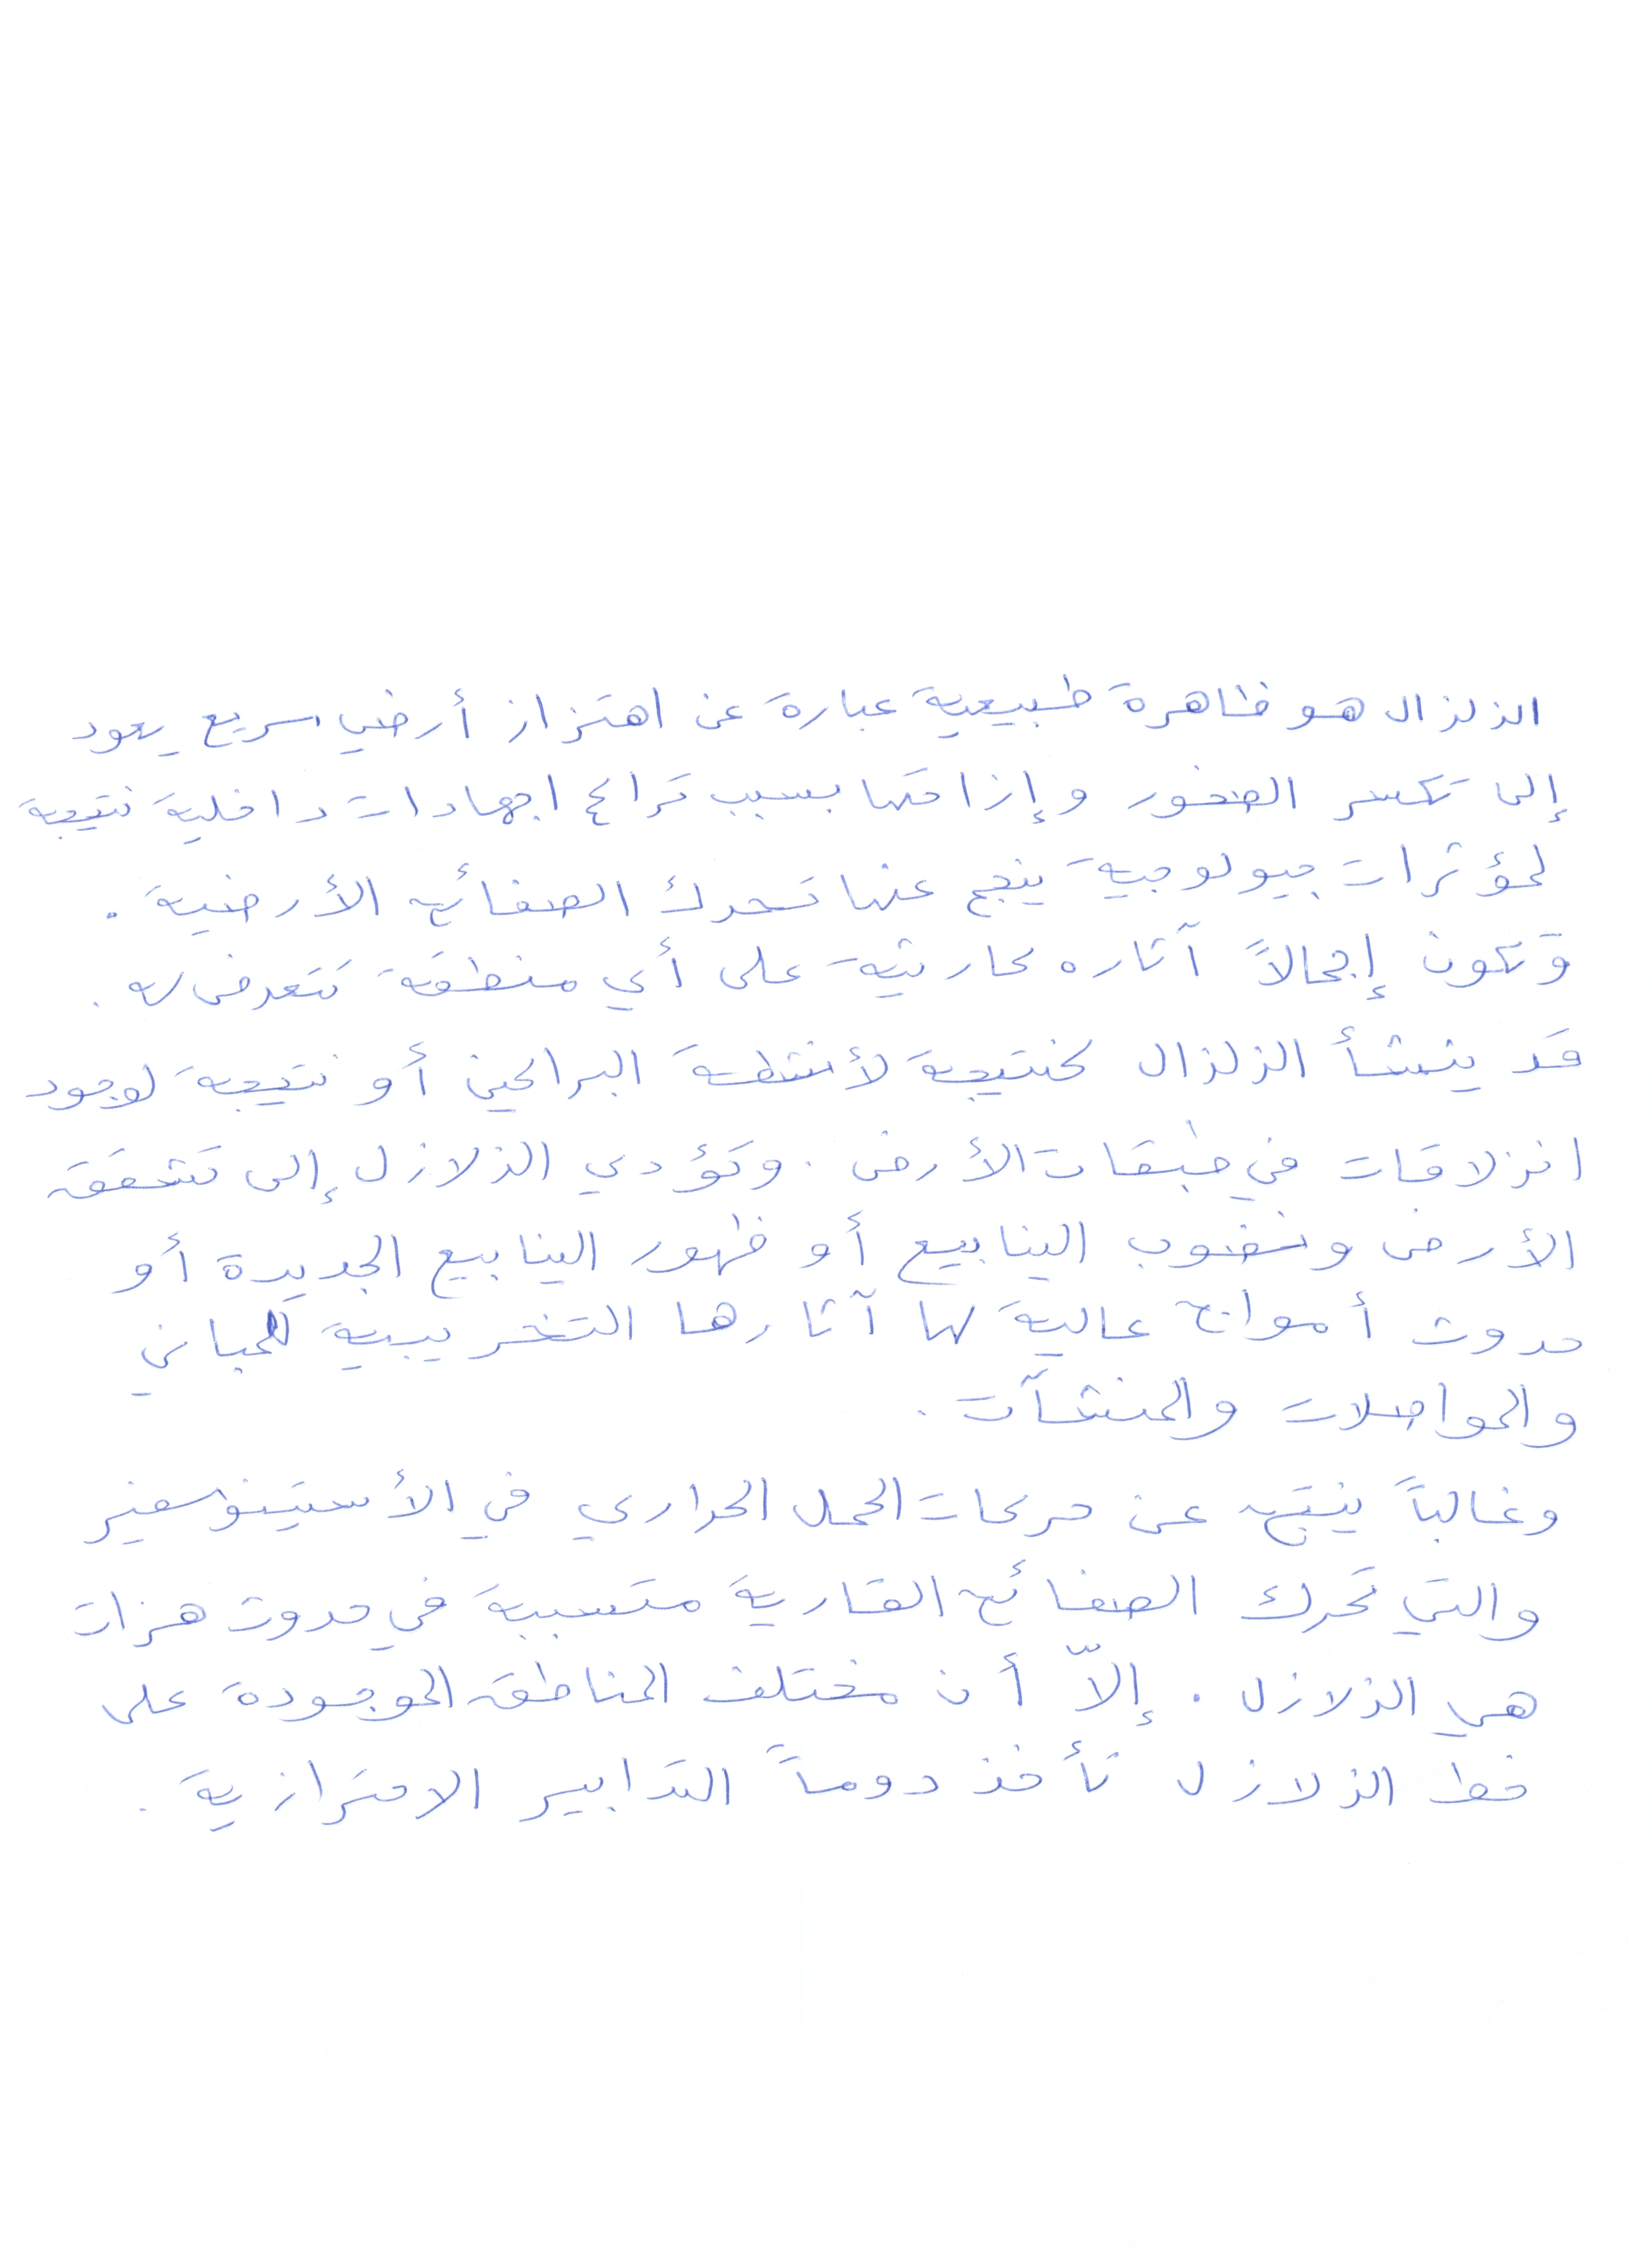 الزلزال هو ظاهرة طبيعية عبارة عن اهتزاز أرضي سريع يعود
إلى تكسر الصخور وإزاحتها بسبب تراكم اجهادات داخلية نتيجة
لمؤثرات جيولوجية ينجم عنها تحرك الصفائح الأرضية .
وتكون إجمالاً آثاره كارثية على أي منطقة تتعرض له .
قد ينشأ الزلزال كنتيجة لأنشطة البراكين أو نتيجة لوجود
انزلاقات في طبقات الأرض . وتؤدي الزلازل إلى تشقق
الأرض ونضوب الينابيع أو ظهور الينابيع الجديدة أو
حدوث أمواج عالية لها آثارها التخريبية للمباني
والمواصلات والمنشآت .
وغالباً ينتج عن حركات الحمل الحراري في الأستينوسفير
والتي تحرك الصفائح القارية متسببة في حدوث هزات
هي الزلازل . إلاّ أن مختلف المناطق الموجودة على
خط الزلازل تأخذ دوماً التدابير الاحترازية .